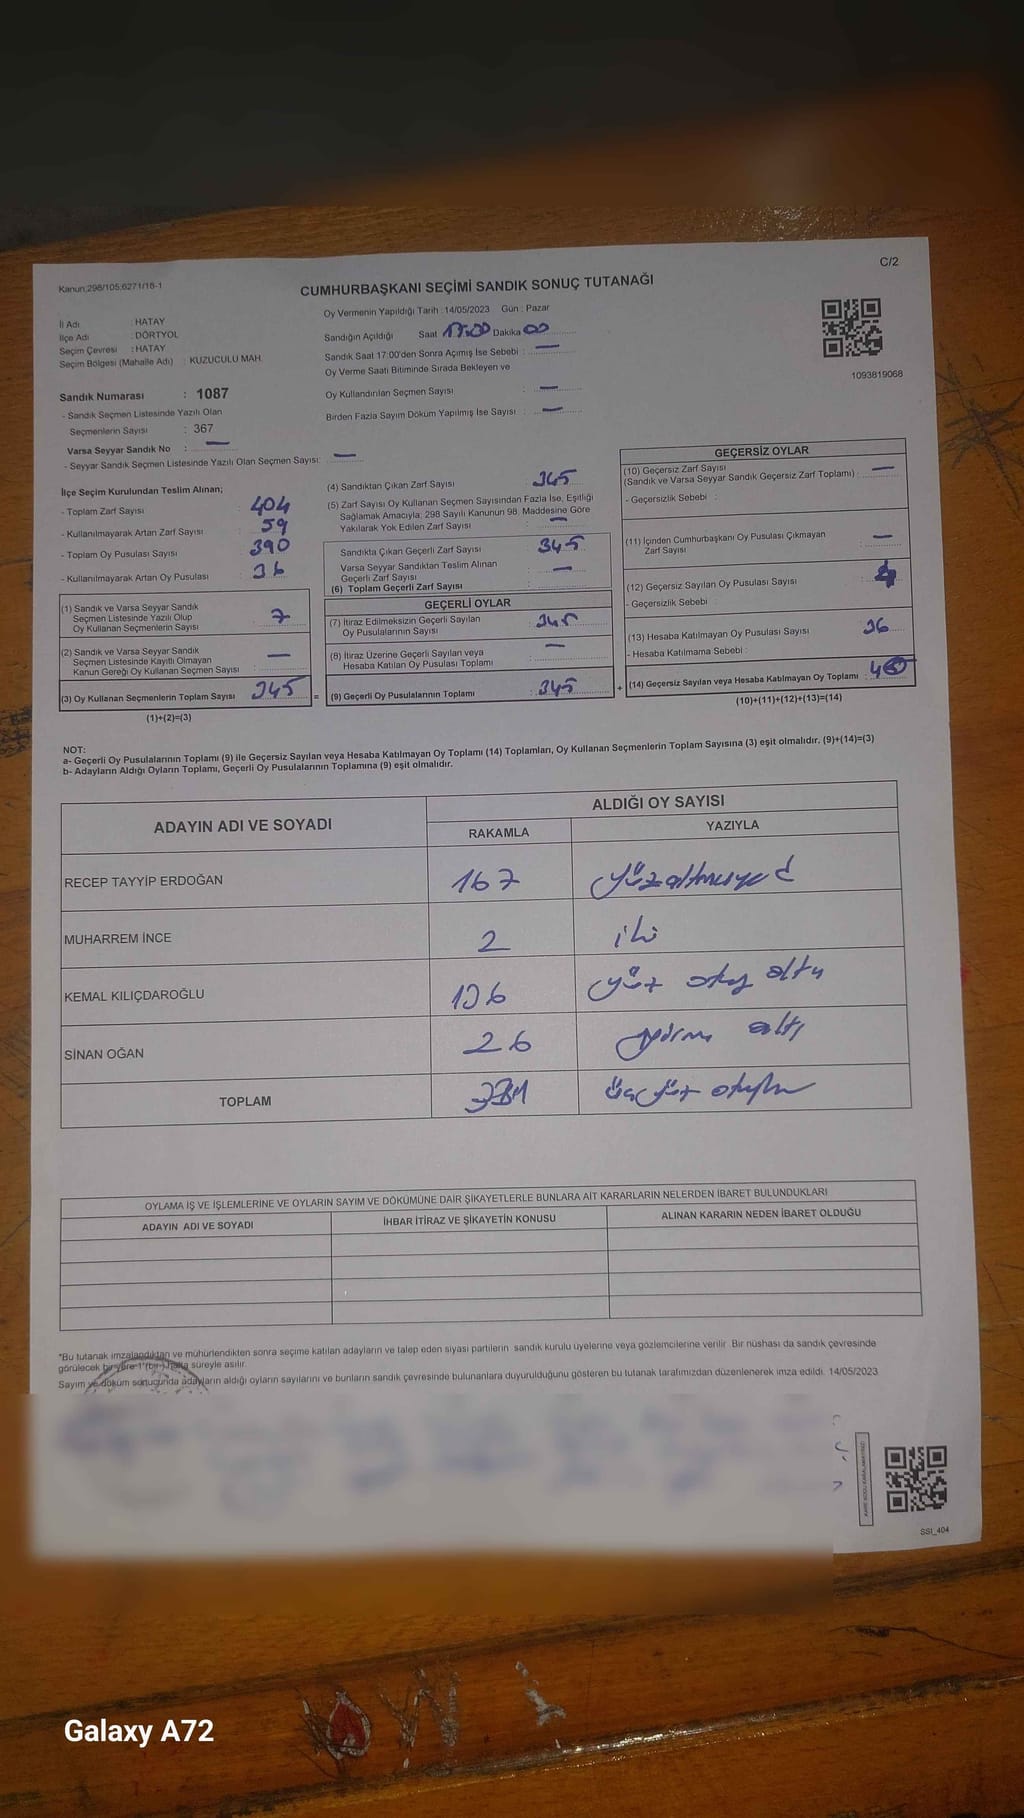 C/2
Kanun;298/105;6271/16-1
CUMHURBAŞKANI SEÇİMİ SANDIK SONUÇ TUTANAĞI
Oy Vermenin Yapıldığı Tarih : 14/05/2023 Gün : Pazar
İl Adı : HATAY
İlçe Adı : DÖRTYOL
Seçim Çevresi : HATAY
Seçim Bölgesi (Mahalle Adı) : KUZUCULU MAH.
Sandığın Açıldığı Saat 17:00 Dakika 00
Sandık Saat 17:00'den Sonra Açımış İse Sebebi : —
Oy Verme Saati Bitiminde Sırada Bekleyen ve
Oy Kullandırılan Seçmen Sayısı : —
Birden Fazla Sayım Döküm Yapılmış İse Sayısı : —
1093819068
Sandık Numarası : 1087
- Sandık Seçmen Listesinde Yazılı Olan
Seçmenlerin Sayısı : 367
Varsa Seyyar Sandık No : —
- Seyyar Sandık Seçmen Listesinde Yazılı Olan Seçmen Sayısı: —
İlçe Seçim Kurulundan Teslim Alınan;
- Toplam Zarf Sayısı : 404
- Kullanılmayarak Artan Zarf Sayısı : 59
- Toplam Oy Pusulası Sayısı : 390
- Kullanılmayarak Artan Oy Pusulası : 36
(1) Sandık ve Varsa Seyyar Sandık
Seçmen Listesinde Yazılı Olup
Oy Kullanan Seçmenlerin Sayısı : 7
(2) Sandık ve Varsa Seyyar Sandık
Seçmen Listesinde Kayıtlı Olmayan
Kanun Gereği Oy Kullanan Seçmen Sayısı : —
(3) Oy Kullanan Seçmenlerin Toplam Sayısı : 345 =
(1)+(2)=(3)
(4) Sandıktan Çıkan Zarf Sayısı : 345
(5) Zarf Sayısı Oy Kullanan Seçmen Sayısından Fazla İse, Eşitliği
Sağlamak Amacıyla; 298 Sayılı Kanunun 98. Maddesine Göre
Yakılarak Yok Edilen Zarf Sayısı : —
Sandıkta Çıkan Geçerli Zarf Sayısı : 345
Varsa Seyyar Sandıktan Teslim Alınan
Geçerli Zarf Sayısı : —
(6) Toplam Geçerli Zarf Sayısı :
GEÇERLİ OYLAR
(7) İtiraz Edilmeksizin Geçerli Sayılan
Oy Pusulalarının Sayısı : 345
(8) İtiraz Üzerine Geçerli Sayılan veya
Hesaba Katılan Oy Pusulası Toplamı : —
(9) Geçerli Oy Pusulalarının Toplamı : 345 +
GEÇERSİZ OYLAR
(10) Geçersiz Zarf Sayısı
(Sandık ve Varsa Seyyar Sandık Geçersiz Zarf Toplamı) : —
- Geçersizlik Sebebi :
(11) İçinden Cumhurbaşkanı Oy Pusulası Çıkmayan
Zarf Sayısı : —
(12) Geçersiz Sayılan Oy Pusulası Sayısı :
- Geçersizlik Sebebi :
(13) Hesaba Katılmayan Oy Pusulası Sayısı : 36
- Hesaba Katılmama Sebebi :
(14) Geçersiz Sayılan veya Hesaba Katılmayan Oy Toplamı :
(10)+(11)+(12)+(13)=(14)
NOT:
a- Geçerli Oy Pusulalarının Toplamı (9) ile Geçersiz Sayılan veya Hesaba Katılmayan Oy Toplamı (14) Toplamları, Oy Kullanan Seçmenlerin Toplam Sayısına (3) eşit olmalıdır. (9)+(14)=(3)
b- Adayların Aldığı Oyların Toplamı, Geçerli Oy Pusulalarının Toplamına (9) eşit olmalıdır.
ADAYIN ADI VE SOYADI
ALDIĞI OY SAYISI
RAKAMLA YAZIYLA
RECEP TAYYİP ERDOĞAN 167 yüzaltmışyedi
MUHARREM İNCE 2 iki
KEMAL KILIÇDAROĞLU 136 yüz otuz altı
SİNAN OĞAN 26 yirmi altı
TOPLAM üçyüz
OYLAMA İŞ VE İŞLEMLERİNE VE OYLARIN SAYIM VE DÖKÜMÜNE DAİR ŞİKAYETLERLE BUNLARA AİT KARARLARIN NELERDEN İBARET BULUNDUKLARI
ADAYIN ADI VE SOYADI İHBAR İTİRAZ VE ŞİKAYETİN KONUSU ALINAN KARARIN NEDEN İBARET OLDUĞU
*Bu tutanak imzalandıktan ve mühürlendikten sonra seçime katılan adayların ve talep eden siyasi partilerin sandık kurulu üyelerine veya gözlemcilerine verilir. Bir nüshası da sandık çevresinde
görülecek bir yere 1 (bir) hafta süreyle asılır.
Sayım ve döküm sonucunda adayların aldığı oyların sayılarını ve bunların sandık çevresinde bulunanlara duyurulduğunu gösteren bu tutanak tarafımızdan düzenlenerek imza edildi. 14/05/2023
SSI_404
Galaxy A72